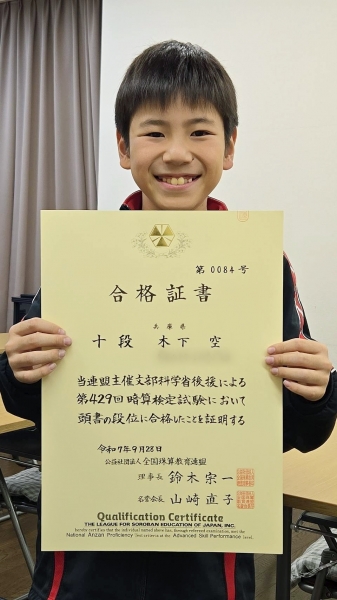 第 0084 号
合格証書
兵庫県
十段 木下 空
当連盟主催文部科学省後援による
第429回暗算検定試験において
頭書の段位に合格したことを証明する
令和7年9月28日
公益社団法人 全国珠算教育連盟
理事長 鈴木宗一
名誉会長 山崎直子
Qualification Certificate
THE LEAGUE FOR SOROBAN EDUCATION OF JAPAN, INC.
hereby certifies that the individual named above has, through
National Anzan Proficiency Test
Advanced Skill Performance